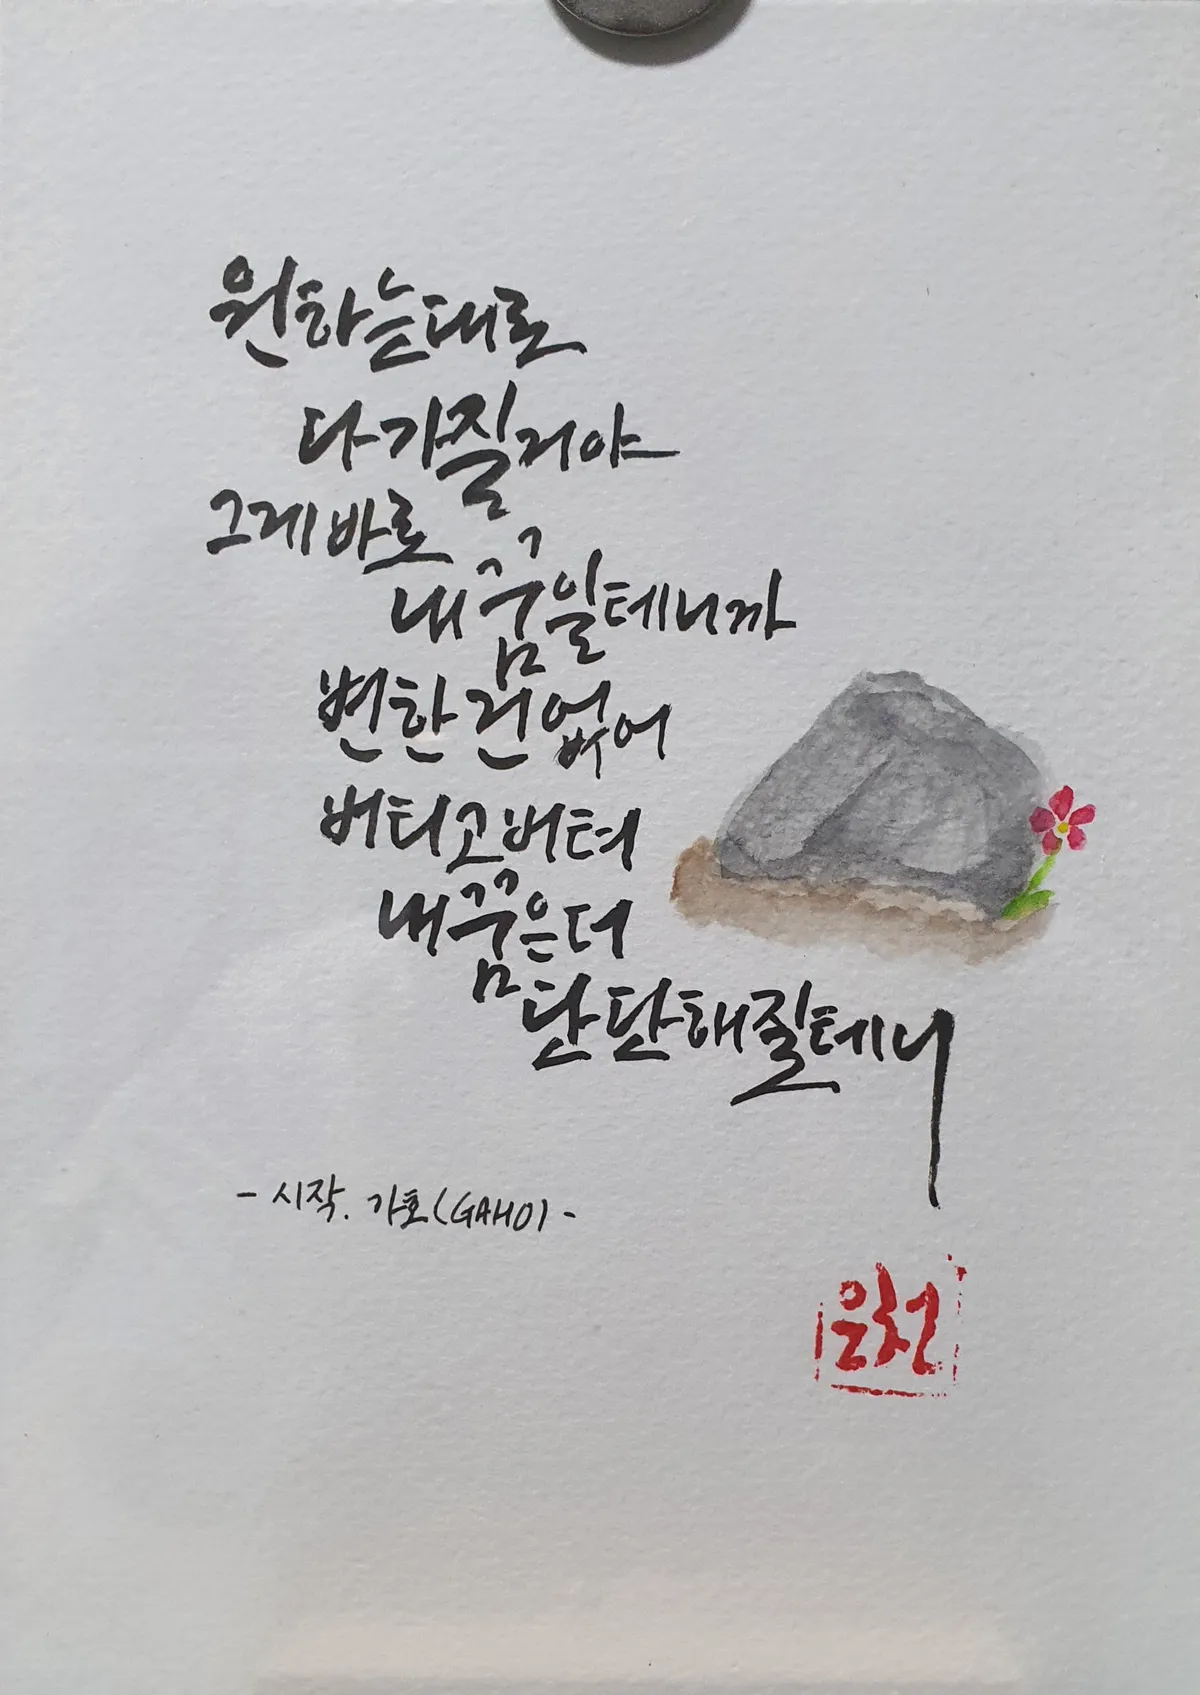 원하는대로
다 가질거야
그게 바로
내 꿈일테니까
변한 건 없어
버티고 버텨
내 꿈은 더
단단해질테니
- 시작. 가호(GAHO) -
은천